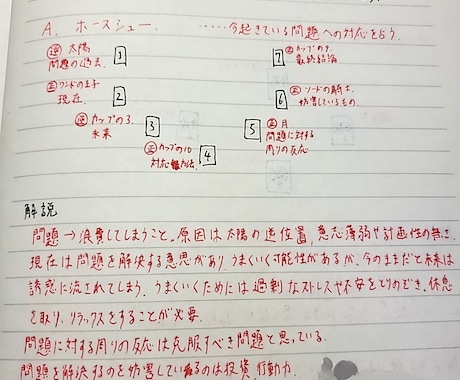 A. ホースシュー. ……今起きている問題への対応を占う.
逆 太陽
問題の過去. 1
正 ワンドの王子
現在. 2
逆 カップの3.
未来 3
正 カップの10
対応方法. 4
正 月
5 問題に対する
周りの反応
6 正 ソードの騎士.
妨害しているもの.
7 正 カップの9.
最終結論
解説
問題→浪費してしまうこと。原因は太陽の逆位置、意志薄弱や計画性の無さ.
現在は問題を解決する意思があり、うまくいく可能性があるが、今のままだと未来は
誘惑に流されてしまう. うまくいくためには過剰なストレスや不安をとりのぞき、休息
を取り、リラックスをすることが必要.
問題に対する周りの反応は克服すべき問題と思っている.
問題を解決するのを妨害しているのは投資、行動力.